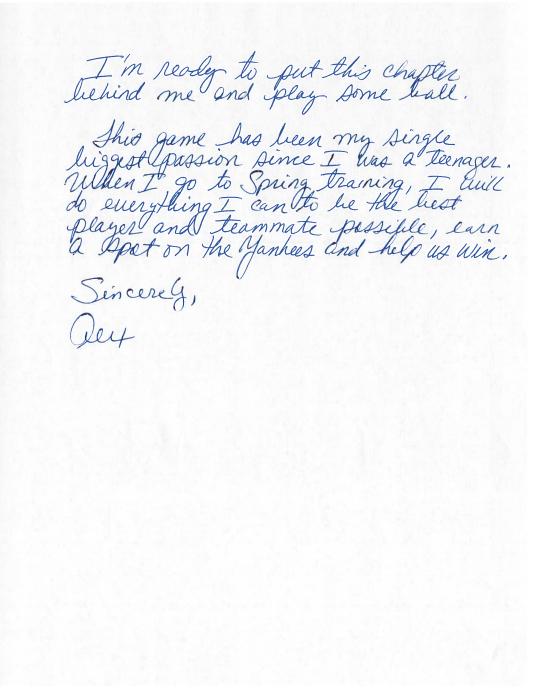 I'm ready to put this chapter
behind me and play some ball.
This game has been my single
biggest passion since I was a teenager.
When I go to Spring training, I will
do everything I can to be the best
player and teammate possible, earn
a spot on the Yankees and help us win.
Sincerely,
Alex